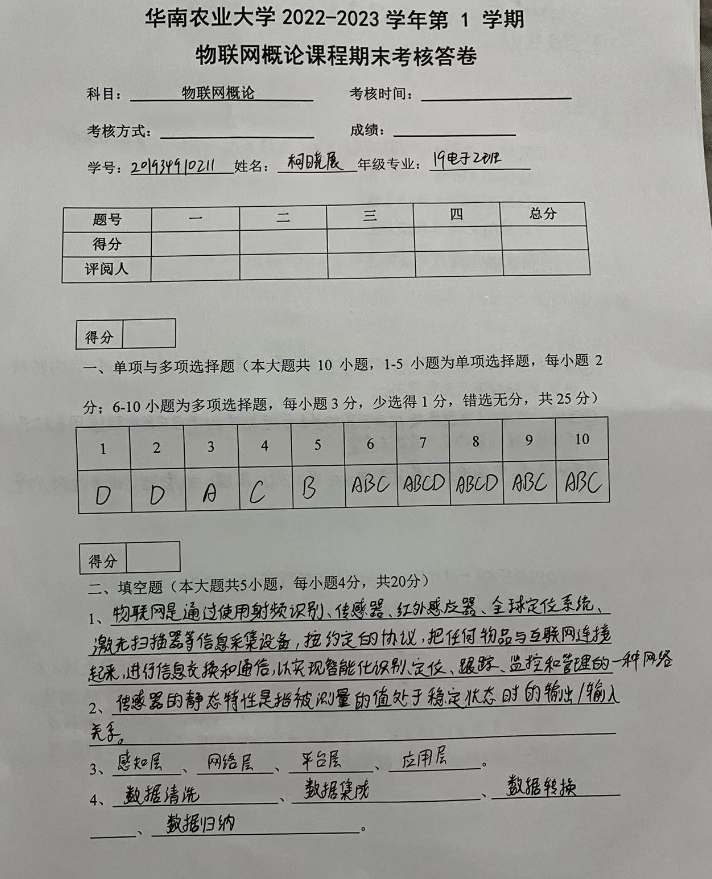 华南农业大学 2022-2023 学年第 1 学期
物联网概论课程期末考核答卷
科目： 物联网概论 考核时间：
考核方式： 成绩：
学号：201934910211 姓名：柯晓展 年级专业：19电子2班
题号 一 二 三 四 总分
得分
评阅人
得分
一、单项与多项选择题（本大题共 10 小题，1-5 小题为单项选择题，每小题 2
分；6-10 小题为多项选择题，每小题 3 分，少选得 1 分，错选无分，共 25 分）
1 2 3 4 5 6 7 8 9 10
D D A C B ABC ABCD ABCD ABC ABC
得分
二、填空题（本大题共5小题，每小题4分，共20分）
1、物联网是通过使用射频识别、传感器、红外感应器、全球定位系统、
激光扫描器等信息采集设备，按约定的协议，把任何物品与互联网连接
起来，进行信息交换和通信，以实现智能化识别、定位、跟踪、监控和管理的一种网络
2、传感器的静态特性是指被测量的值处于稳定状态时的输出/输入
关系。
3、感知层、网络层、平台层、应用层。
4、数据清洗、数据集成、数据转换
、数据归纳。